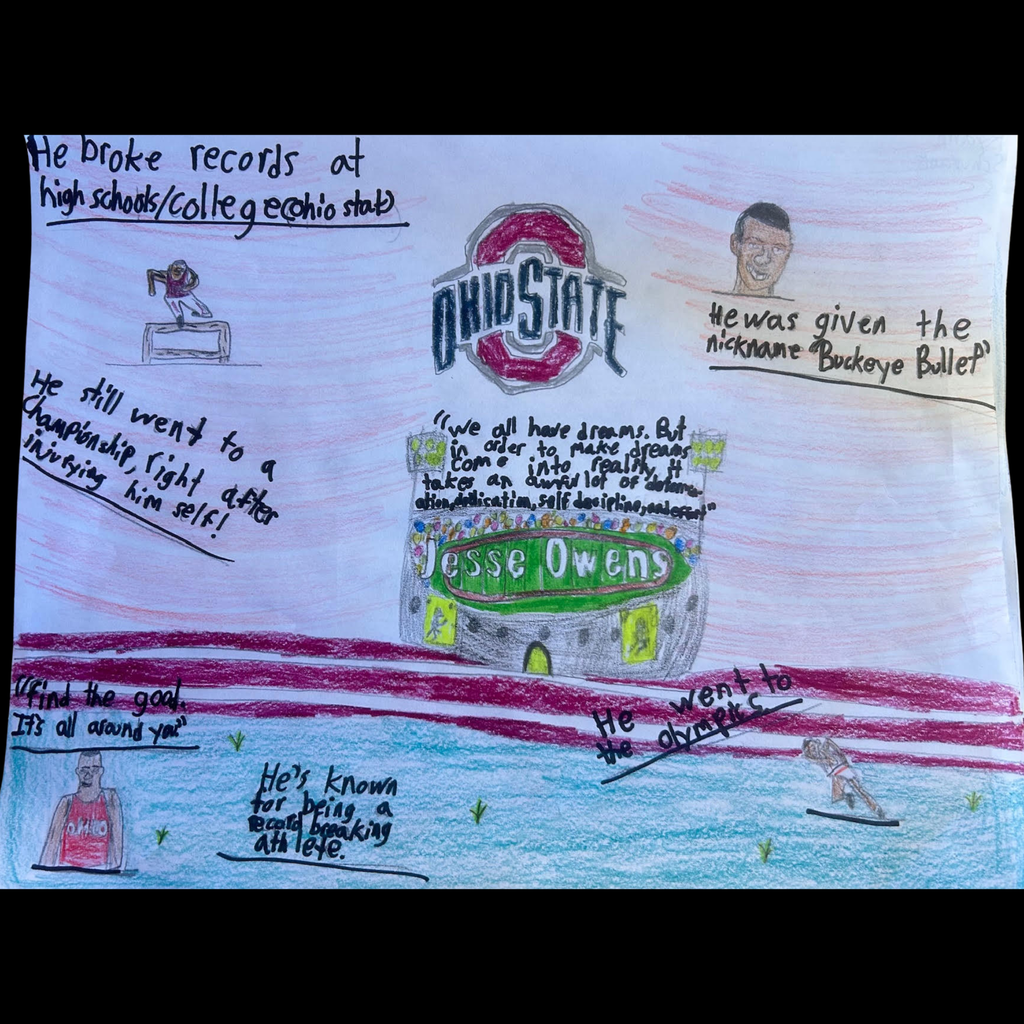 He broke records at
high schools/college(ohio stat)
OHIO STATE
He was given the
nickname "Buckeye Bullet"
He still went to a
Championship, right after
injurying him self!
"We all have dreams. But
in order to make dreams
come into reality, it
takes an awful lot of determin-
ation, dedication, self decipline, and effort"
Jesse Owens
"find the goal.
It's all around you"
He went to
the olympics
OHIO
He's known
for being a
record breaking
athlete.